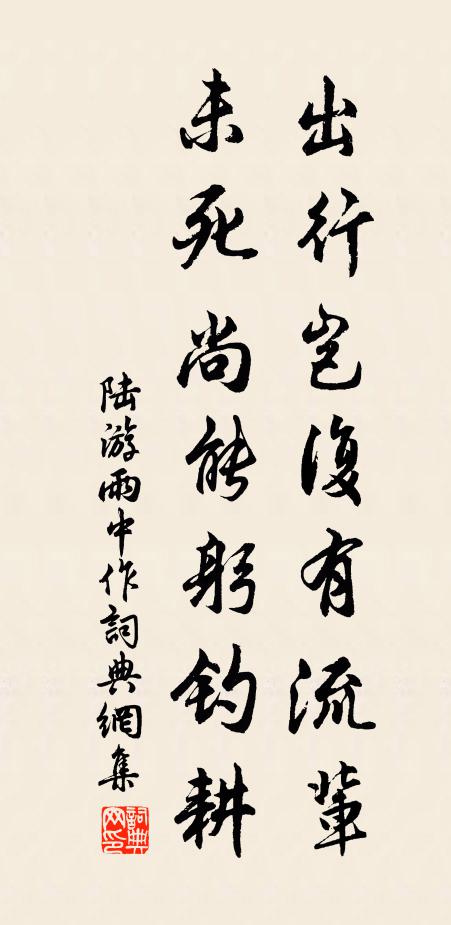 出行岂復有流輩
未死尚能躬钓耕
陆游雨中作詞典網集
詞典網印